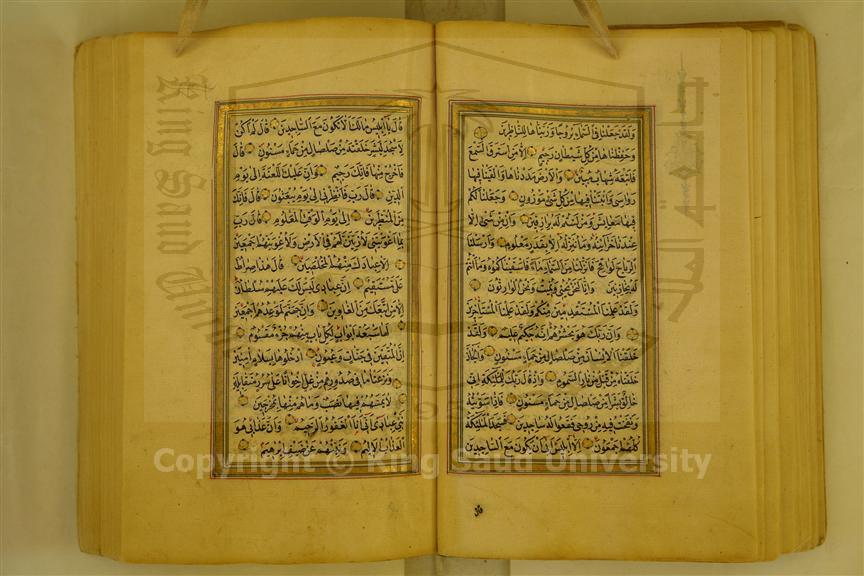 ولقد جعلنا في السماء بروجا وزيناها للناظرين
وحفظناها من كل شيطان رجيم الا من استرق السمع
فاتبعه شهاب مبين والارض مددناها والقينا فيها
رواسي وانبتنا فيها من كل شيء موزون وجعلنا لكم
فيها معايش ومن لستم له برازقين وان من شيء الا
عندنا خزائنه وما ننزله الا بقدر معلوم وارسلنا
الرياح لواقح فانزلنا من السماء ماء فاسقيناكموه وما انتم
له بخازنين وانا لنحن نحيي ونميت ونحن الوارثون
ولقد علمنا المستقدمين منكم ولقد علمنا المستأخرين
وان ربك هو يحشرهم انه حكيم عليم ولقد
خلقنا الانسان من صلصال من حماء مسنون والجان
خلقناه من قبل من نار السموم واذ قال ربك للملئكة اني
خالق بشرا من صلصال من حماء مسنون فاذا سويته
ونفخت فيه من روحي فقعوا له ساجدين فسجد الملئكة
كلهم اجمعون الا ابليس ابى ان يكون مع الساجدين
قال
قال يا ابليس مالك الا تكون مع الساجدين قال لم اكن
لاسجد لبشر خلقته من صلصال من حماء مسنون قال
فاخرج منها فانك رجيم وان عليك اللعنة الى يوم
الدين قال رب فانظرني الى يوم يبعثون قال فانك
من المنظرين الى يوم الوقت المعلوم قال رب
بما اغويتني لازينن لهم في الارض ولاغوينهم اجمعين
الا عبادك منهم المخلصين قال هذا صراط
علي مستقيم ان عبادي ليس لك عليهم سلطان
الا من اتبعك من الغاوين وان جهنم لموعدهم اجمعين
لها سبعة ابواب لكل باب منهم جزء مقسوم
ان المتقين في جنات وعيون ادخلوها بسلام امنين
ونزعنا ما في صدورهم من غل اخوانا على سرر متقابلين
لا يمسهم فيها نصب وما هم منها بمخرجين
نبئ عبادي اني انا الغفور الرحيم وان عذابي هو
العذاب الاليم ونبئهم عن ضيف ابرهيم
Copyright © King Saud University
King Saud University
1957